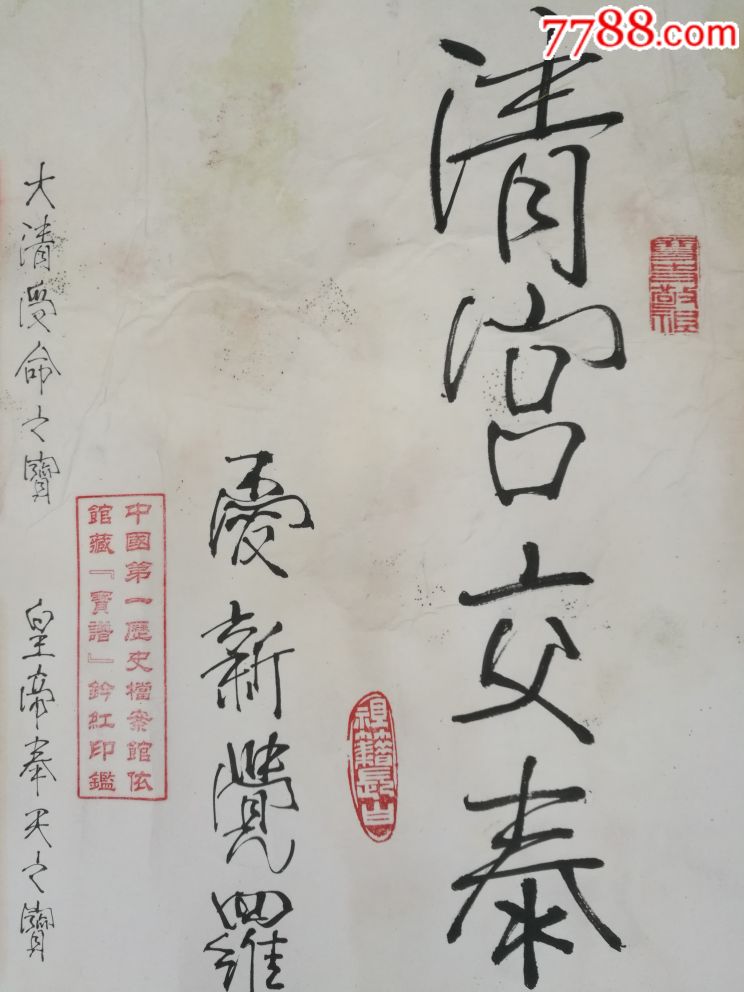 7788.com
清宮交泰
愛新覺羅
祖籍長白
中國第一歷史檔案館依
館藏『寶譜』鈐紅印鑑
大清受命之寶
皇帝奉天之寶